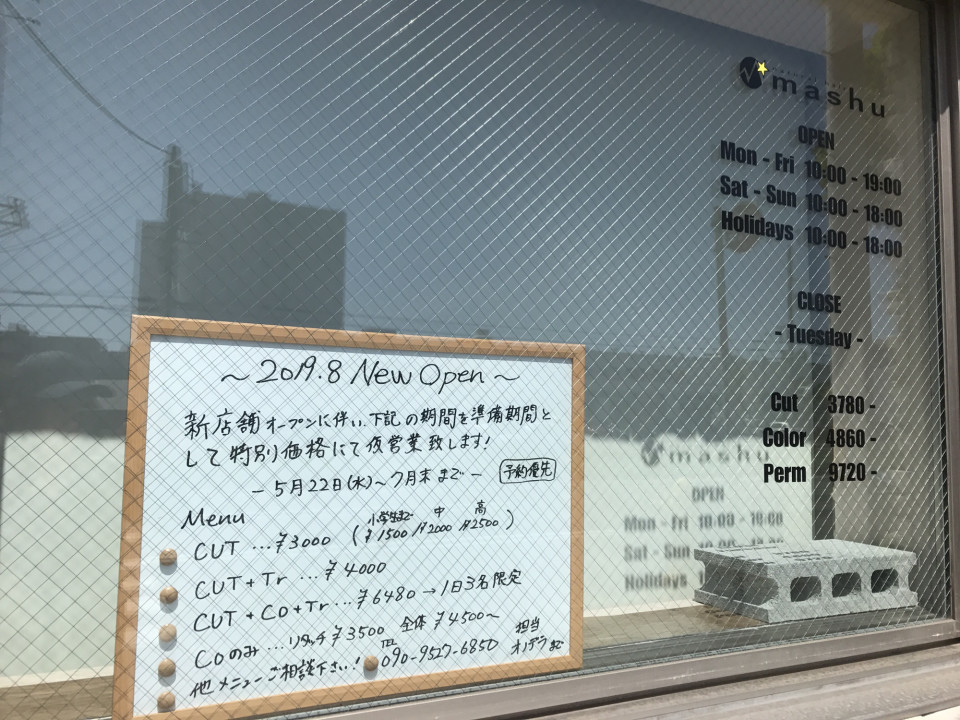 mashu
OPEN
Mon - Fri 10:00 - 19:00
Sat - Sun 10:00 - 18:00
Holidays 10:00 - 18:00
CLOSE
- Tuesday -
Cut 3780 -
Color 4860 -
Perm 9720 -
~ 2019.8 New Open ~
新店舗オープンに伴い、下記の期間を準備期間と
して特別価格にて仮営業致します!
- 5月22日(水)~7月末まで - 予約優先
Menu
CUT ...¥3000 (小学生まで¥1500 / 中¥2000 / 高¥2500)
CUT+Tr ...¥4000
CUT+Co+Tr...¥6480→1日3名限定
Coのみ...リタッチ¥3500 全体¥4500~
他メニューご相談下さい! TEL 090-9527-6850 担当オノデラまで
mashu
OPEN
Mon - Fri 10:00 - 19:00
Sat - Sun
Holidays